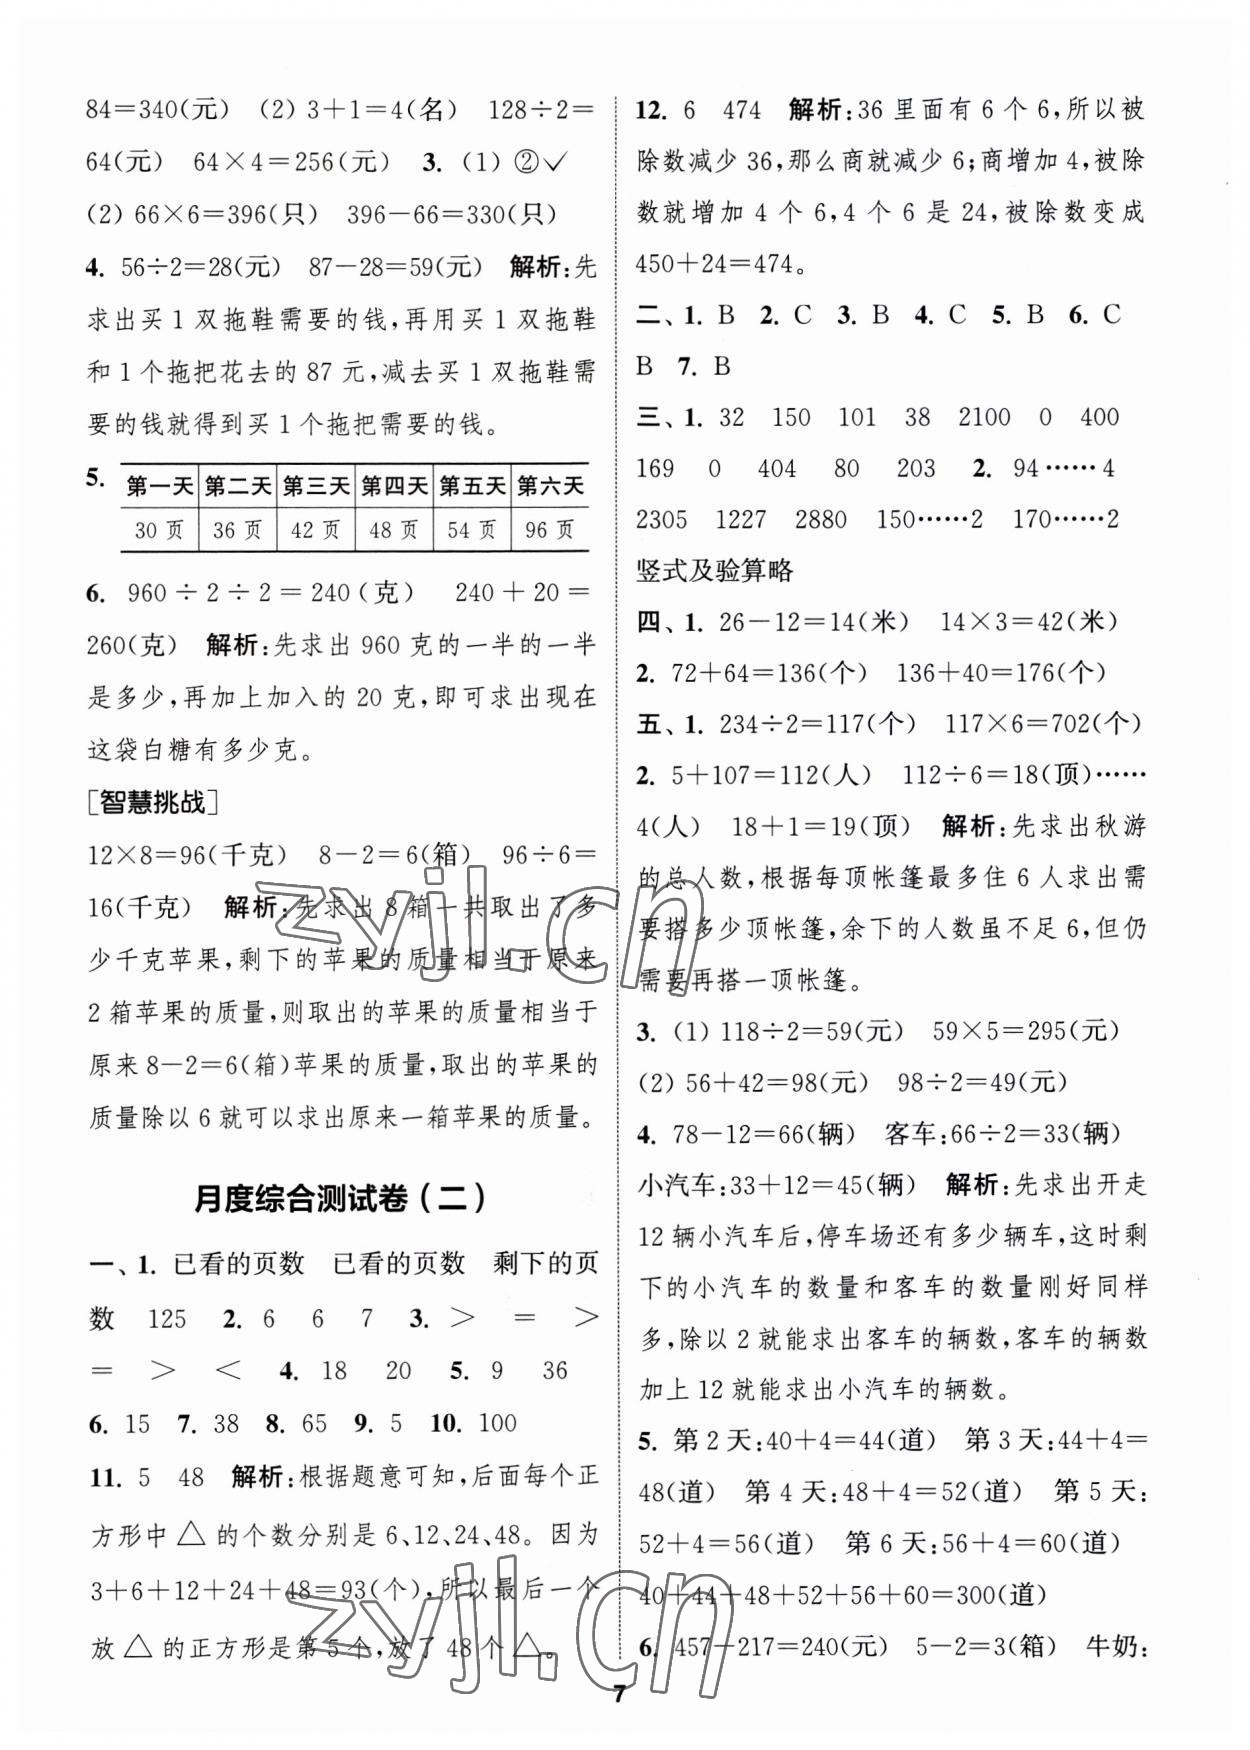 84=340(元) (2) 3+1=4(名) 128÷2=
64(元) 64×4=256(元) 3. (1) ②✓
(2) 66×6=396(只) 396-66=330(只)
4. 56÷2=28(元) 87-28=59(元) 解析:先
求出买1双拖鞋需要的钱,再用买1双拖鞋
和1个拖把花去的87元,减去买1双拖鞋需
要的钱就得到买1个拖把需要的钱。
5. 第一天 第二天 第三天 第四天 第五天 第六天
30页 36页 42页 48页 54页 96页
6. 960÷2÷2=240(克) 240+20=
260(克) 解析:先求出960克的一半的一半
是多少,再加上加入的20克,即可求出现在
这袋白糖有多少克。
[智慧挑战]
12×8=96(千克) 8-2=6(箱) 96÷6=
16(千克) 解析:先求出8箱一共取出了多
少千克苹果,剩下的苹果的质量相当于原来
2箱苹果的质量,则取出的苹果的质量相当于
原来8-2=6(箱)苹果的质量,取出的苹果的
质量除以6就可以求出原来一箱苹果的质量。
月度综合测试卷(二)
一、1. 已看的页数 已看的页数 剩下的页
数 125 2. 6 6 7 3. > = >
= > < 4. 18 20 5. 9 36
6. 15 7. 38 8. 65 9. 5 10. 100
11. 5 48 解析:根据题意可知,后面每个正
方形中△的个数分别是6、12、24、48。因为
3+6+12+24+48=93(个),所以最后一个
放△的正方形是第5个,放了48个△。
12. 6 474 解析:36里面有6个6,所以被
除数减少36,那么商就减少6;商增加4,被除
数就增加4个6,4个6是24,被除数变成
450+24=474。
二、1. B 2. C 3. B 4. C 5. B 6. C
B 7. B
三、1. 32 150 101 38 2100 0 400
169 0 404 80 203 2. 94……4
2305 1227 2880 150……2 170……2
竖式及验算略
四、1. 26-12=14(米) 14×3=42(米)
2. 72+64=136(个) 136+40=176(个)
五、1. 234÷2=117(个) 117×6=702(个)
2. 5+107=112(人) 112÷6=18(顶)……
4(人) 18+1=19(顶) 解析:先求出秋游
的总人数,根据每顶帐篷最多住6人求出需
要搭多少顶帐篷,余下的人数虽不足6,但仍
需要再搭一顶帐篷。
3. (1) 118÷2=59(元) 59×5=295(元)
(2) 56+42=98(元) 98÷2=49(元)
4. 78-12=66(辆) 客车:66÷2=33(辆)
小汽车:33+12=45(辆) 解析:先求出开走
12辆小汽车后,停车场还有多少辆车,这时剩
下的小汽车的数量和客车的数量刚好同样
多,除以2就能求出客车的辆数,客车的辆数
加上12就能求出小汽车的辆数。
5. 第2天:40+4=44(道) 第3天:44+4=
48(道) 第4天:48+4=52(道) 第5天:
52+4=56(道) 第6天:56+4=60(道)
40+44+48+52+56+60=300(道)
6. 457-217=240(元) 5-2=3(箱) 牛奶:
7
zyjl.cn
zyjl.cn